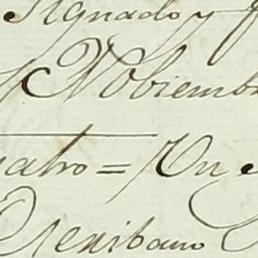 signado y f
Nobiemb
uatro = Un
Escribano